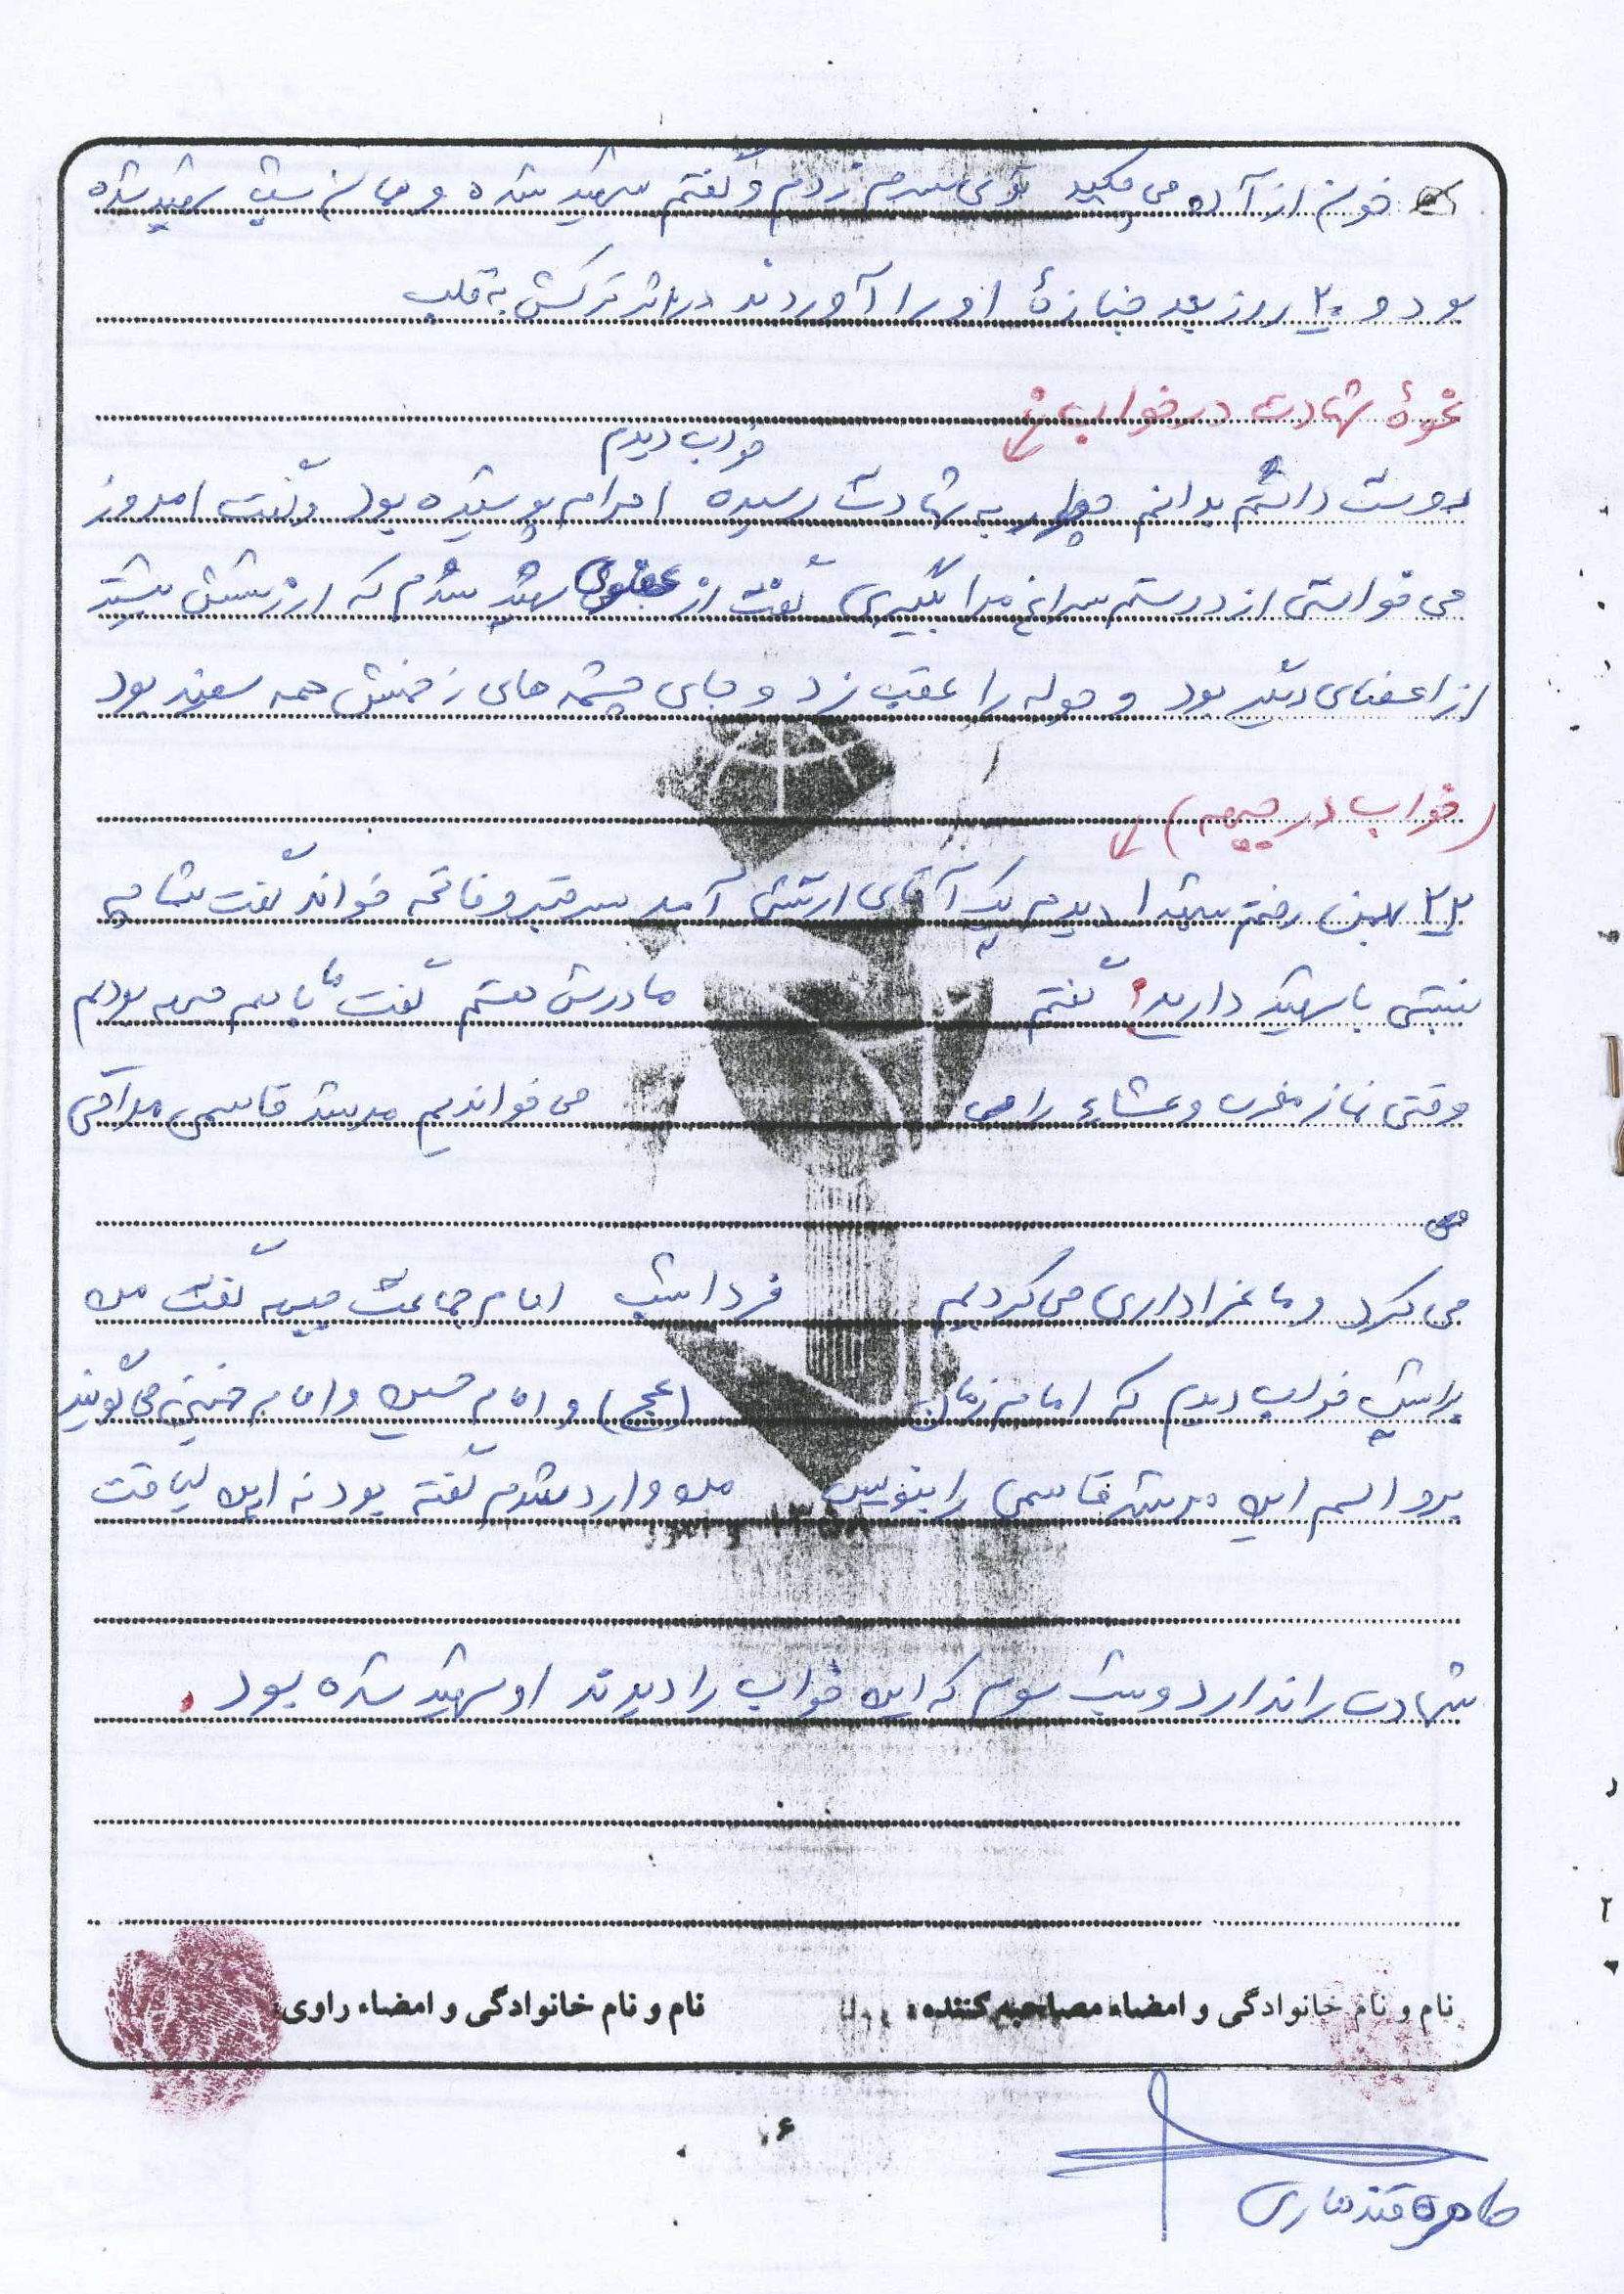 خون از آن می چکید توی سرم زدم و گفتم شهید شده و همان شب شهید شده
بود و ۲۰ روز بعد جنازهٔ او را آوردند در اثر ترکش به قلب
نحوهٔ شهادت در خواب
خواب دیدم
دوست داشتم بدانم چطور به شهادت رسیده احرام پوشیده بود و گفت امروز
می خواستی از دوستم سراغ مرا بگیری گفت از عضوی شهید شدم که ارزشش بیشتر
از اعضای دیگر بود و حوله را عقب زد و جای چشمه های زخمش همه سفید بود
(خواب در جبهه)
۲۲ بهمن رفتم شهدا دیدم یک آقای ارتشی آمد سر قبر و فاتحه خواند گفت شما چه
نسبتی با شهید دارید؟ گفتم مادرش هستم گفت ما با هم جبهه بودیم
وقتی نماز مغرب و عشاء را می می خواندیم مرشد قاسمی مداحی
می
می کرد و ما عزاداری می کردیم فردا شب امام جماعت جبهه گفت من
دیشب خواب دیدم که امام زمان (عج) و امام حسین و امام خمینی می گویند
برو اسم این مرشد قاسمی را بنویس من وارد شدم گفته بود نه این لیاقت
شهادت را ندارد و شب سوم که این خواب را دیدند او شهید شده بود .
نام و نام خانوادگی و امضاء مصاحبه کننده: نام و نام خانوادگی و امضاء راوی:
۶
طاهره قندهاری